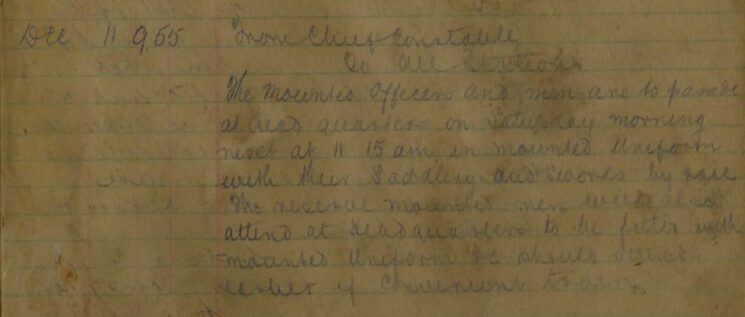 Dec 11 9.55 From Chief Constable
To All Stations
The Mounted Officers and men are to parade
at Head quarters on Saturday morning
next at 11 15 am in mounted Uniform
with their Saddlery and Swords by rail
The reserve mounted men will also
attend at Headquarters to be fitted with
mounted Uniform &c should attend
earlier if Convenient to